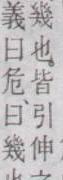 幾也。皆引伸之
義曰危曰、幾